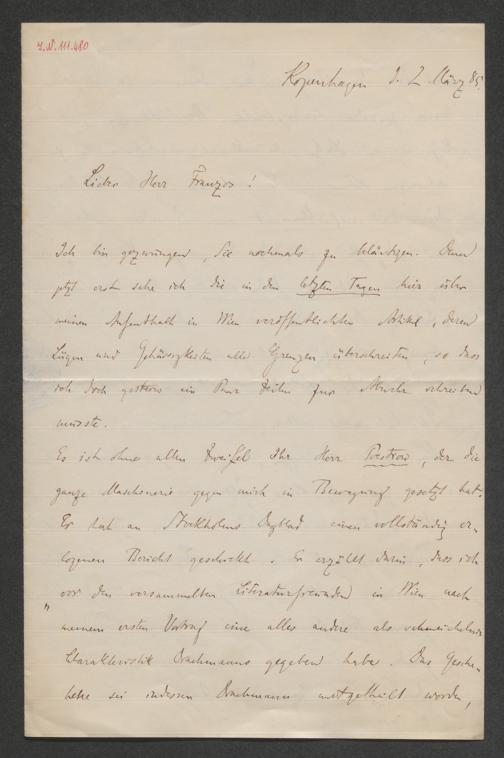 J.N. 111.480
Kopenhagen d. 2 März 85.
Lieber Herr Franzos!
Ich bin gezwungen, Sie nochmals zu belästigen. Denn
jetzt erst sehe ich die in den letzten Tagen hier über
meinen Aufenthalt in Wien veröffentlichten Artikel, deren
Lügen und Gehässigkeiten alle Grenzen überschreiten, so dass
ich doch gestern ein Paar Zeilen zur Abwehr schreiben
musste.
Es ist ohne allen Zweifel Ihr Herr, der die
ganze Maschinerie gegen mich in Bewegung gesetzt hat.
Er hat an Stockholms Dagblad einen vollständig er-
logenen Bericht geschickt. Er erzählt darin, dass ich
vor den versammelten Literaturfreunden in Wien nach
"meinem ersten Vortrag eine alles andere als schmeichelnde
Charakteristik Drachmanns gegeben habe. Das Gesche-
hene sei indessen Drachmann mitgetheilt worden,